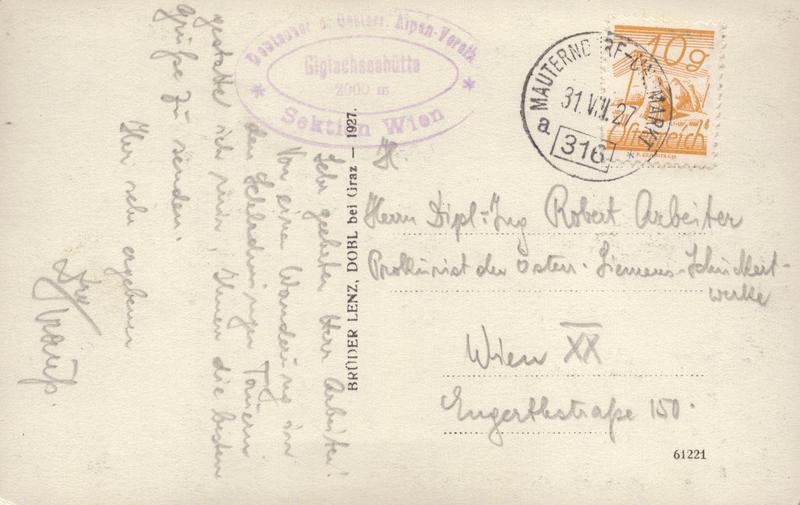 Deutscher u. Österr. Alpen-Verein
Giglachseehütte
2000 m
* Sektion Wien *
Sehr geehrter Herr Arbeiter!
Von einer Wanderung in
den Schladminger Tauern
gestatte ich mir, Ihnen die besten
Grüße zu senden.
Ihr sehr ergebener
BRÜDER LENZ, DOBL bei Graz — 1927.
MAUTERNDORF-UN. MARKT
31.VII.27
a 316 *
10g
Österreich
H.
Herrn Dipl.-Ing Robert Arbeiter
Prokurist der Österr. Siemens-Schuckert-
werke
Wien XX
Engerthstraße 150.
61221